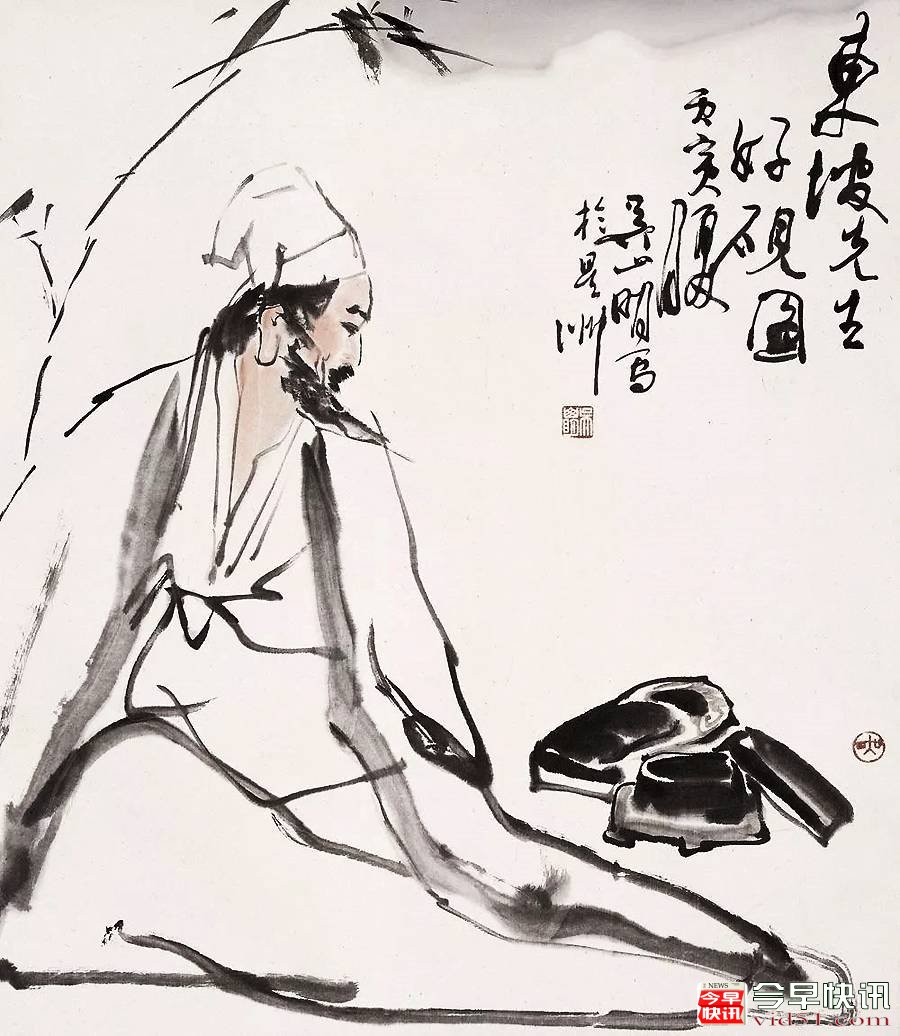 東坡先生
好硯圖
丙寅夏
吴山明写
於星洲
NEWS
今早
快讯
今早快讯
vid51.com